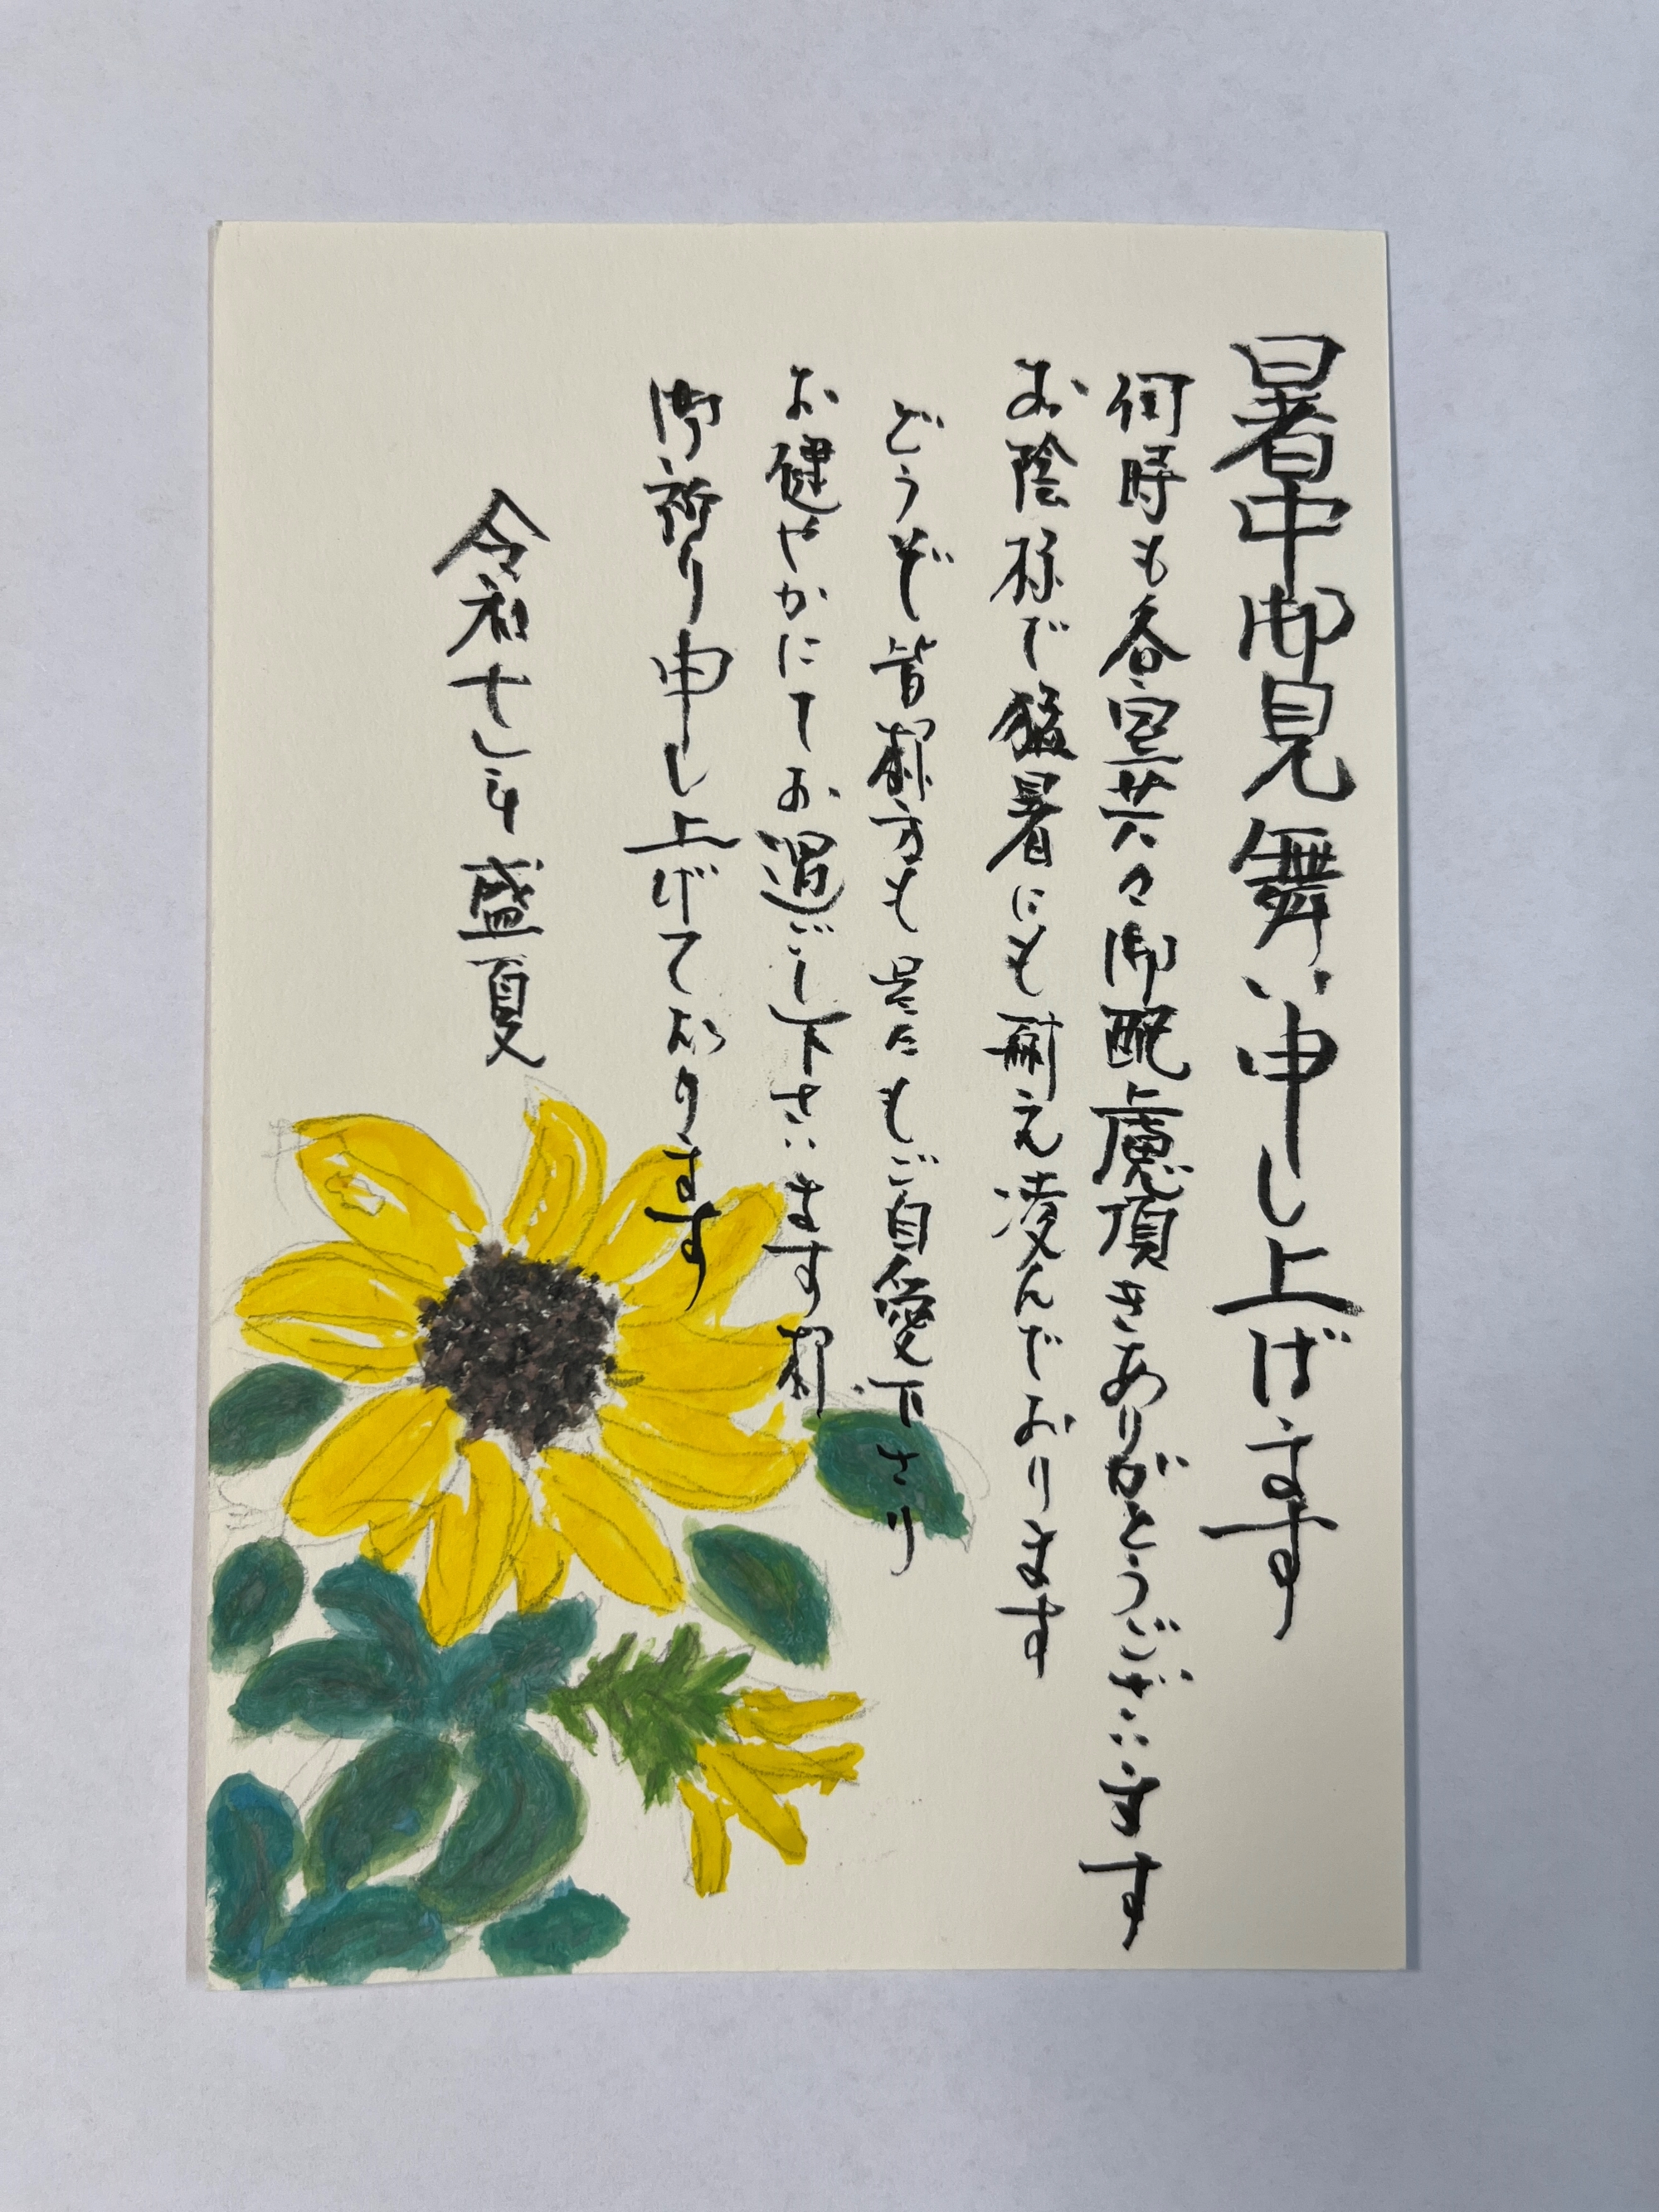 暑中御見舞い申し上げます
何時も各宣共々御配慮頂きありがとうございます
お陰様で猛暑にも耐え凌んでおります
どうぞ皆様方も呉々もご自愛下さり
お健やかにてお過ごし下さいます様
御祈り申し上げております
令和七年盛夏